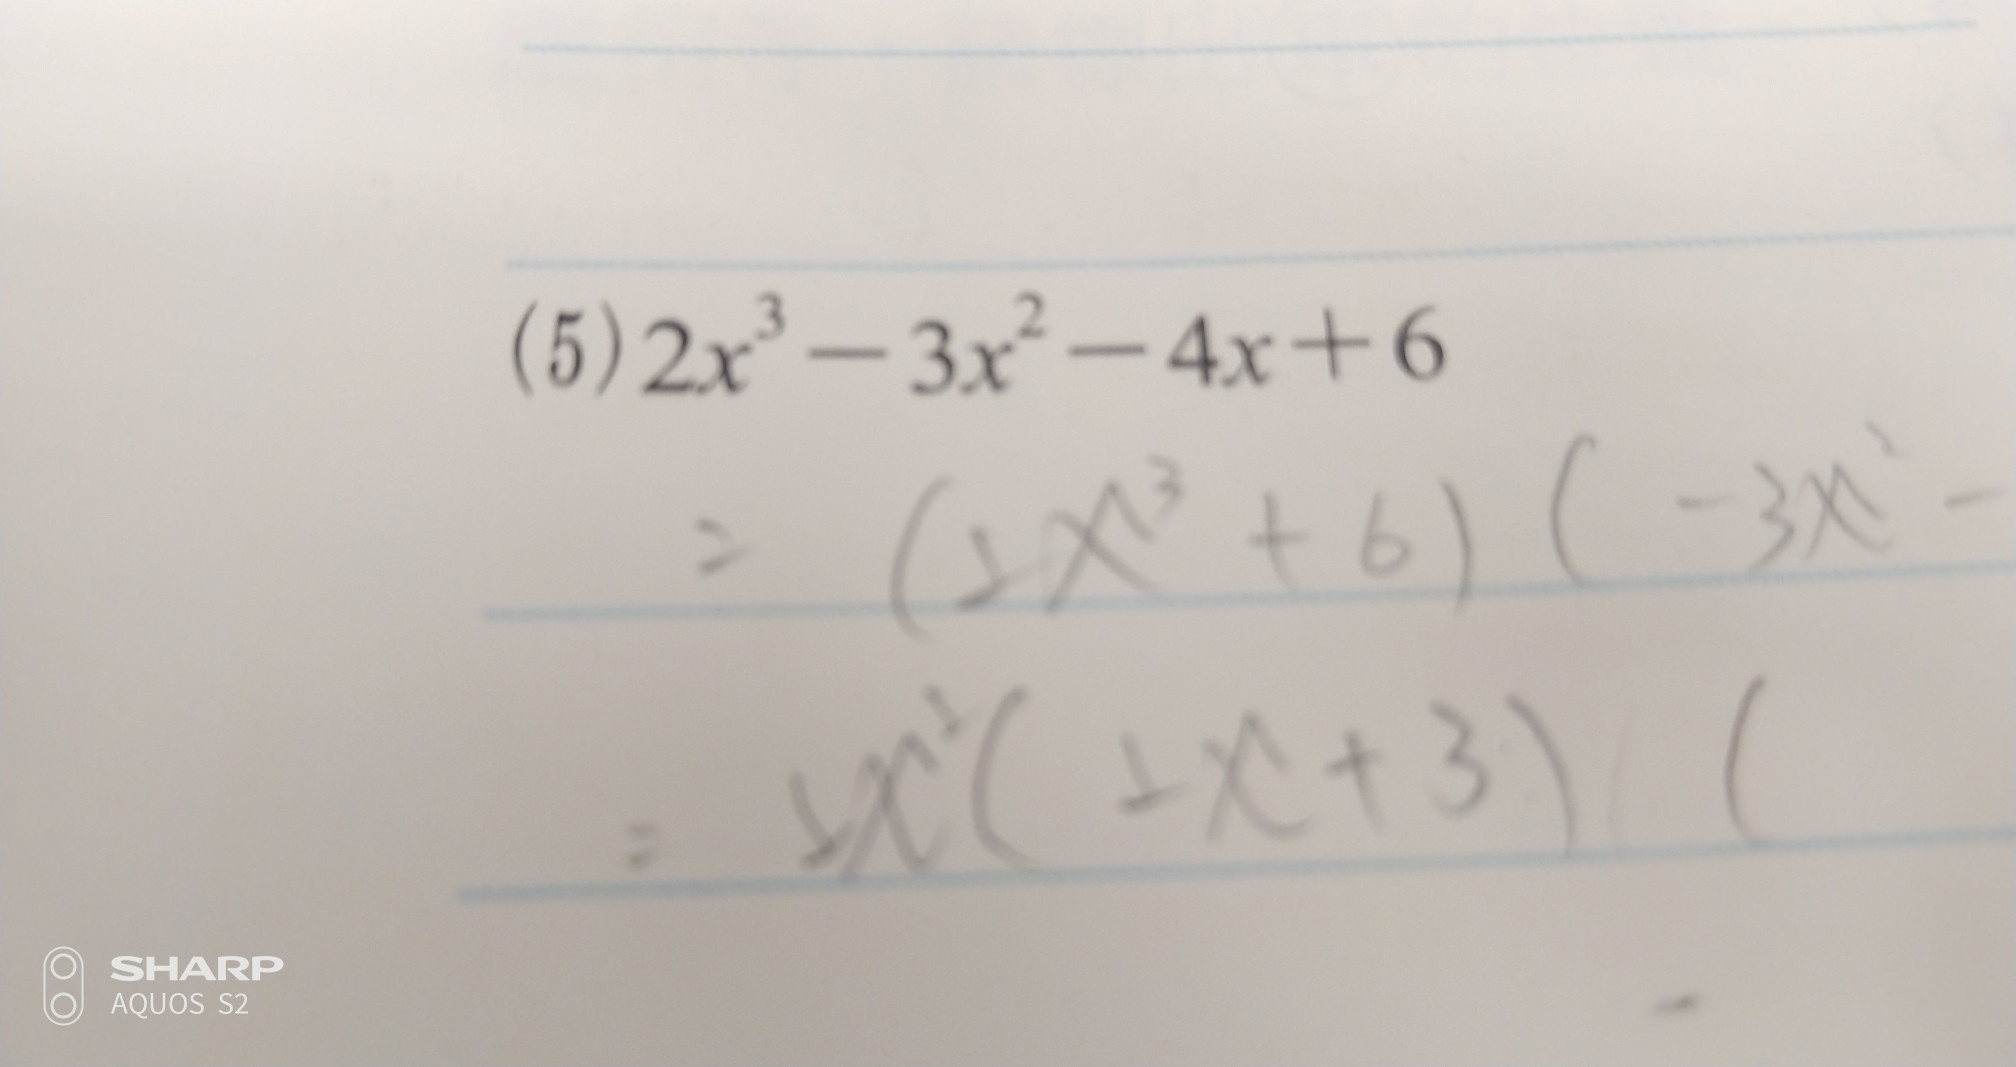 (5) 2x³ − 3x² − 4x + 6
= (2x³ + 6) ( −3x² −
= 2x² ( 2x + 3 ) (
SHARP
AQUOS S2